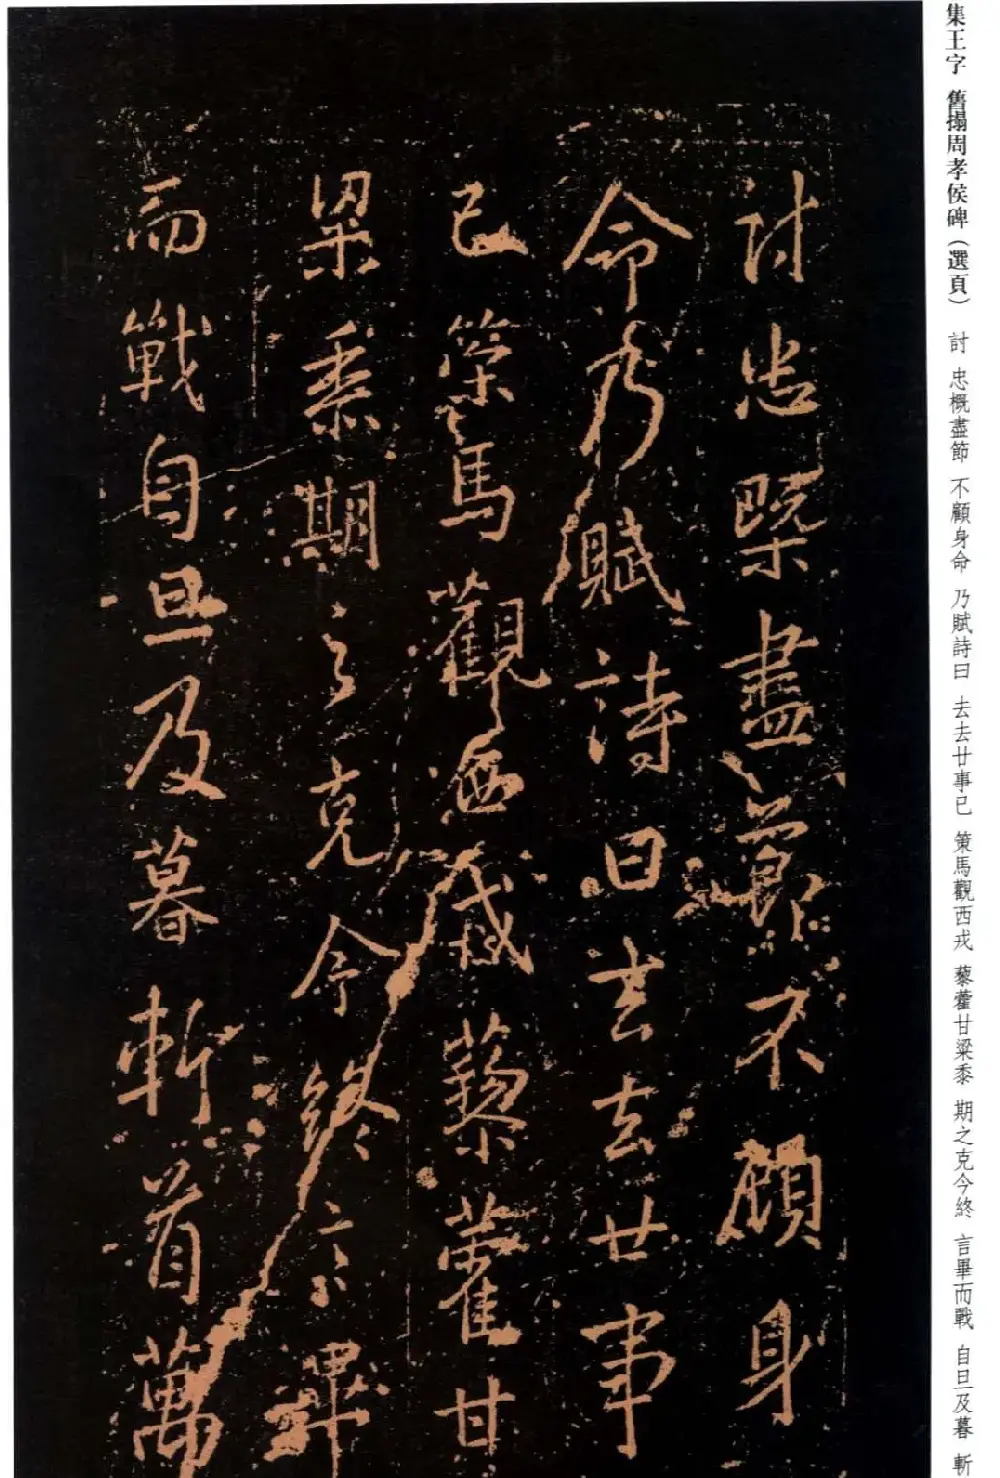 集王字 舊搨周孝侯碑(選頁) 討 忠概盡節 不顧身命 乃賦詩曰 去去廿事已 策馬觀西戎 藜藿甘粱黍 期之克今終 言畢而戰 自旦及暮 斬
討忠槩盡節不顧身
命乃賦詩曰去去廿事
已策馬觀西戎藜藿甘
梁黍期之克令終言畢
而戰自旦及暮斬首萬